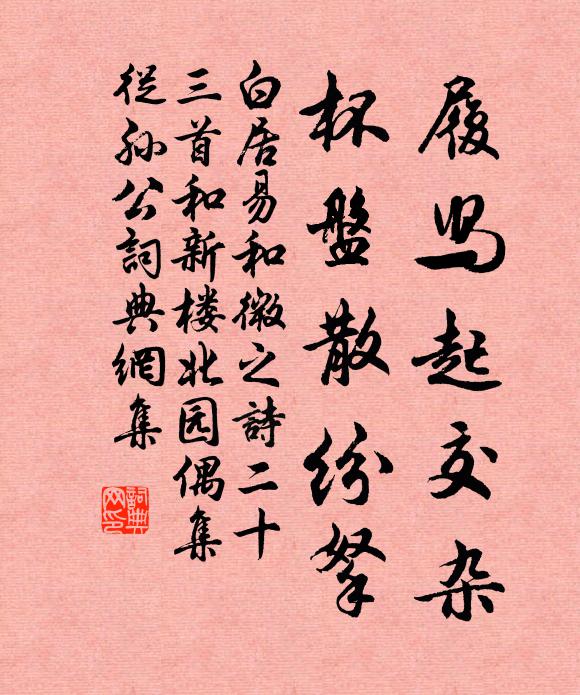 履舄起交杂
杯盤散纷拏
白居易和微之詩二十
三首和新楼北园偶集
從孙公詞典網集
詞典
网印